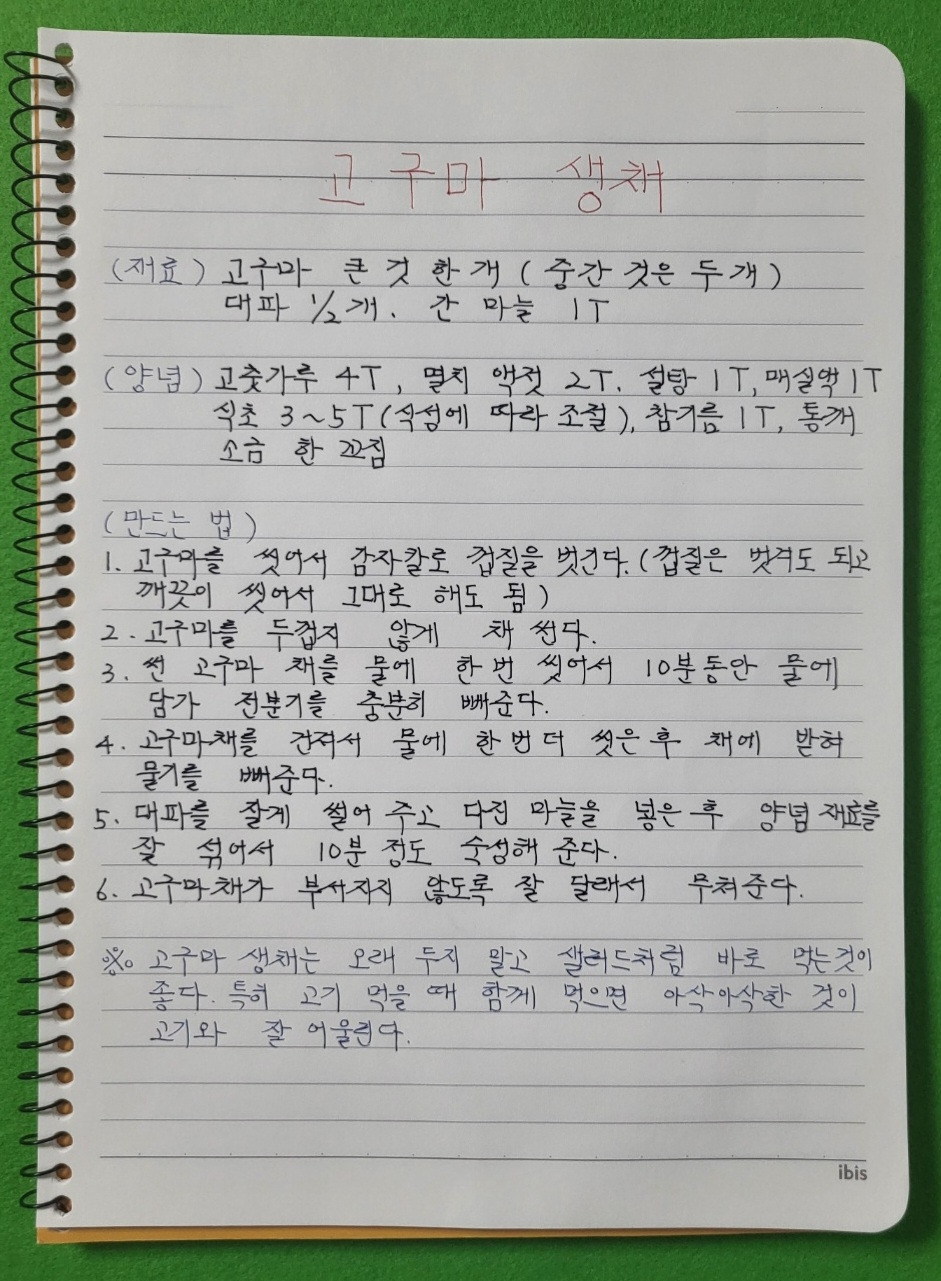 고구마 생채
(재료) 고구마 큰 것 한 개 (중간 것은 두 개)
대파 1/2개. 간 마늘 1T
(양념) 고춧가루 4T, 멸치 액젓 2T. 설탕 1T, 매실액 1T
식초 3~5T (식성에 따라 조절), 참기름 1T, 통깨
소금 한 꼬집
(만드는 법)
1. 고구마를 씻어서 감자칼로 껍질을 벗긴다. (껍질은 벗겨도 되고
깨끗이 씻어서 그대로 해도 됨)
2. 고구마를 두껍지 않게 채 썬다.
3. 썬 고구마 채를 물에 한 번 씻어서 10분 동안 물에
담가 전분기를 충분히 빼준다.
4. 고구마채를 건져서 물에 한 번 더 씻은 후 채에 받혀
물기를 빼준다.
5. 대파를 잘게 썰어 주고 다진 마늘을 넣은 후 양념 재료를
잘 섞어서 10분 정도 숙성해 준다.
6. 고구마채가 부서지지 않도록 잘 달래서 무쳐준다.
※ 고구마 생채는 오래 두지 말고 샐러드처럼 바로 먹는것이
좋다. 특히 고기 먹을 때 함께 먹으면 아삭아삭한 것이
고기와 잘 어울린다.
ibis